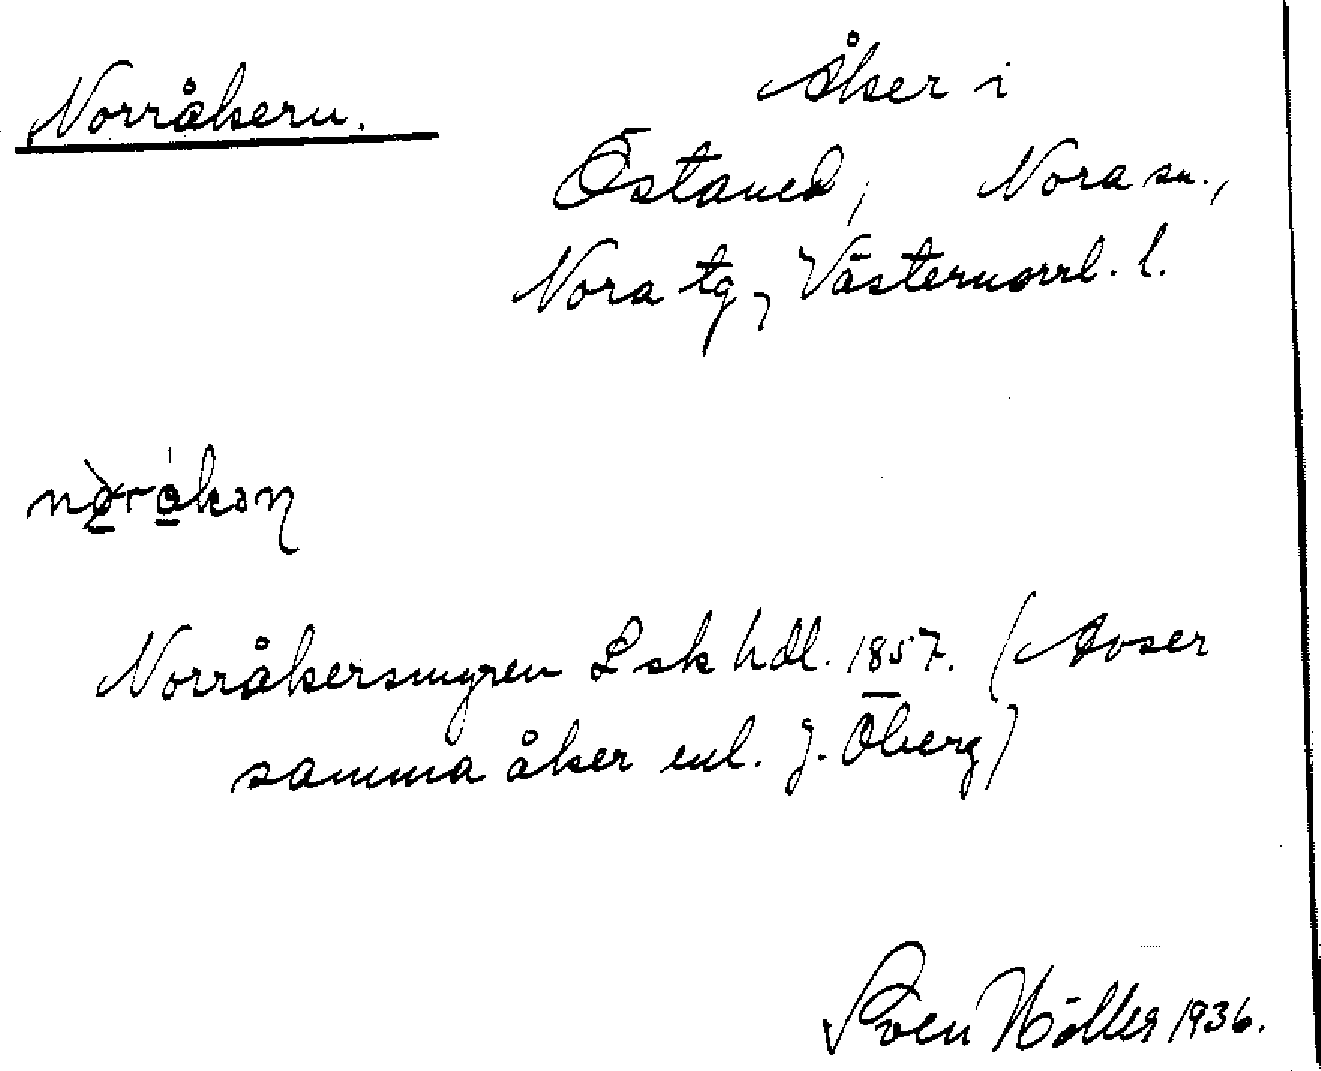 Norråkern.
Åker i
Östaned, Nora sn.,
Nora tg, Västernorrl. l.
Norråkersmyren L sk hdl. 1857. (Avser
samma åker enl. J. Öberg)
Sven Höller 1936.